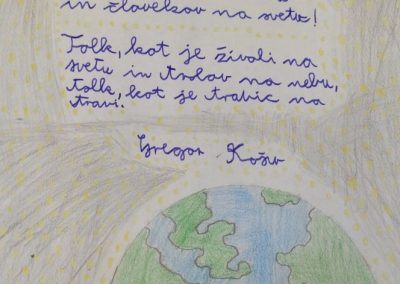 in človekov na svetu!
Tolk, kot je živali na
svetu in trolov na nebu,
tolk, kot je trabic na
travi.
Gregor Košir